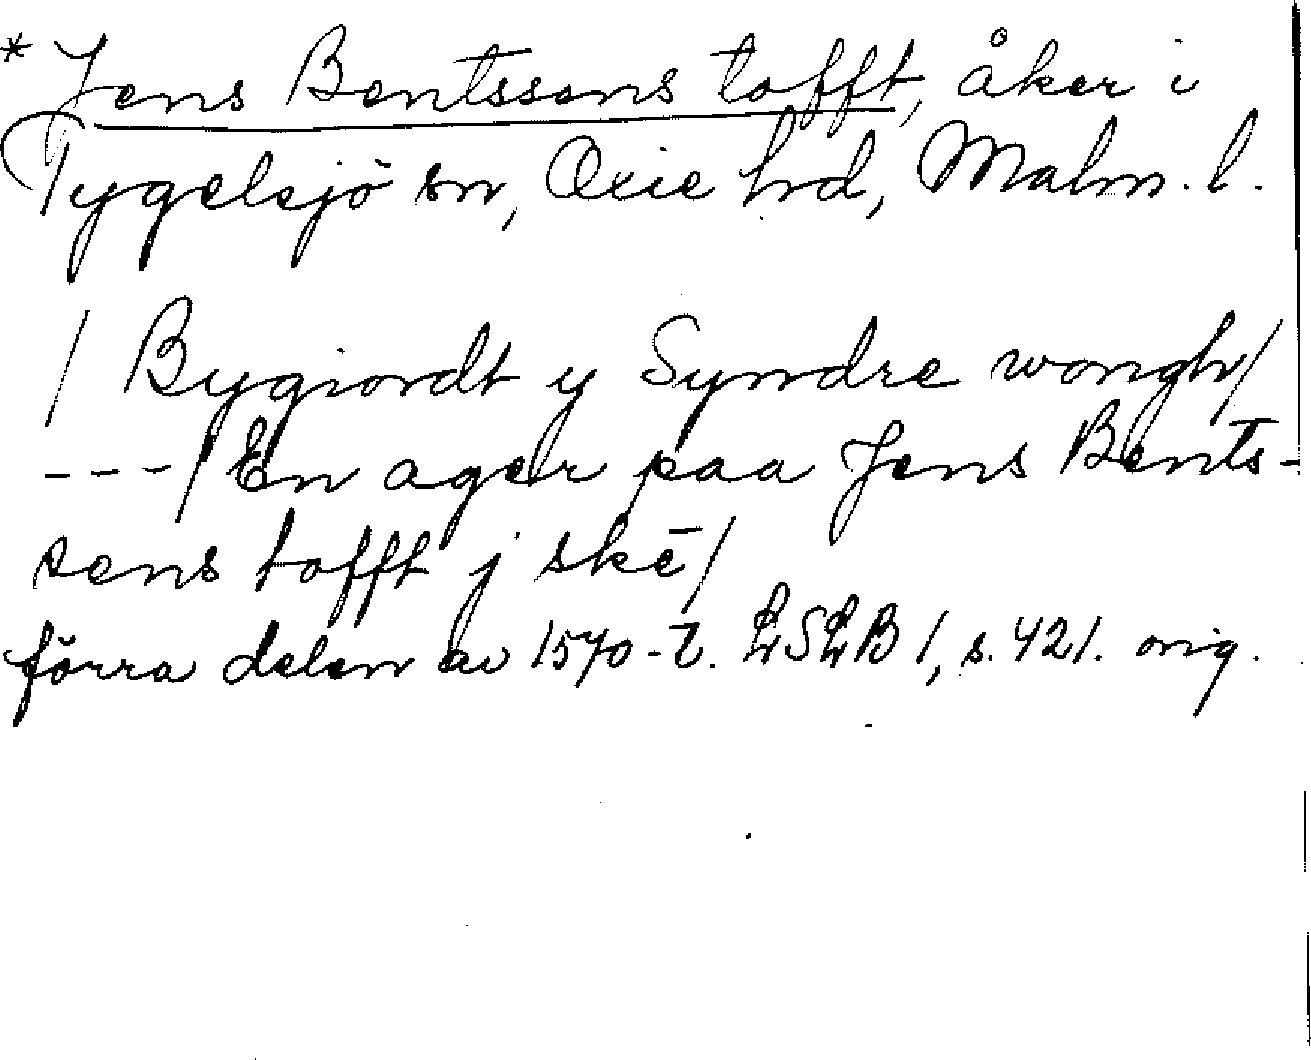 * Jens Bentssens tofft, åker i
Tygelsjö sn, Oxie hd, Malm. l.
/ Bygiordt y Syndre wongh/
---/ En ager paa Jens Bents-
sens tofft j skē/
förra delen av 1570-t. LSLB 1, s. 421. orig.